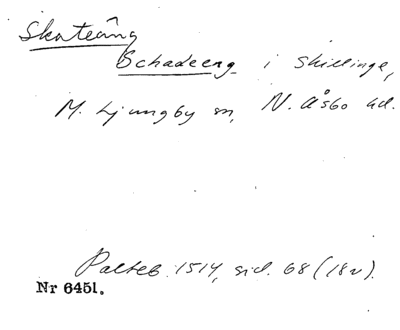 Skateäng
Schadeeng i Skillinge,
M. Ljungby sn, N. Åsbo hd.
Palteb. 1514, sid. 68 (18v).
Nr 6451.